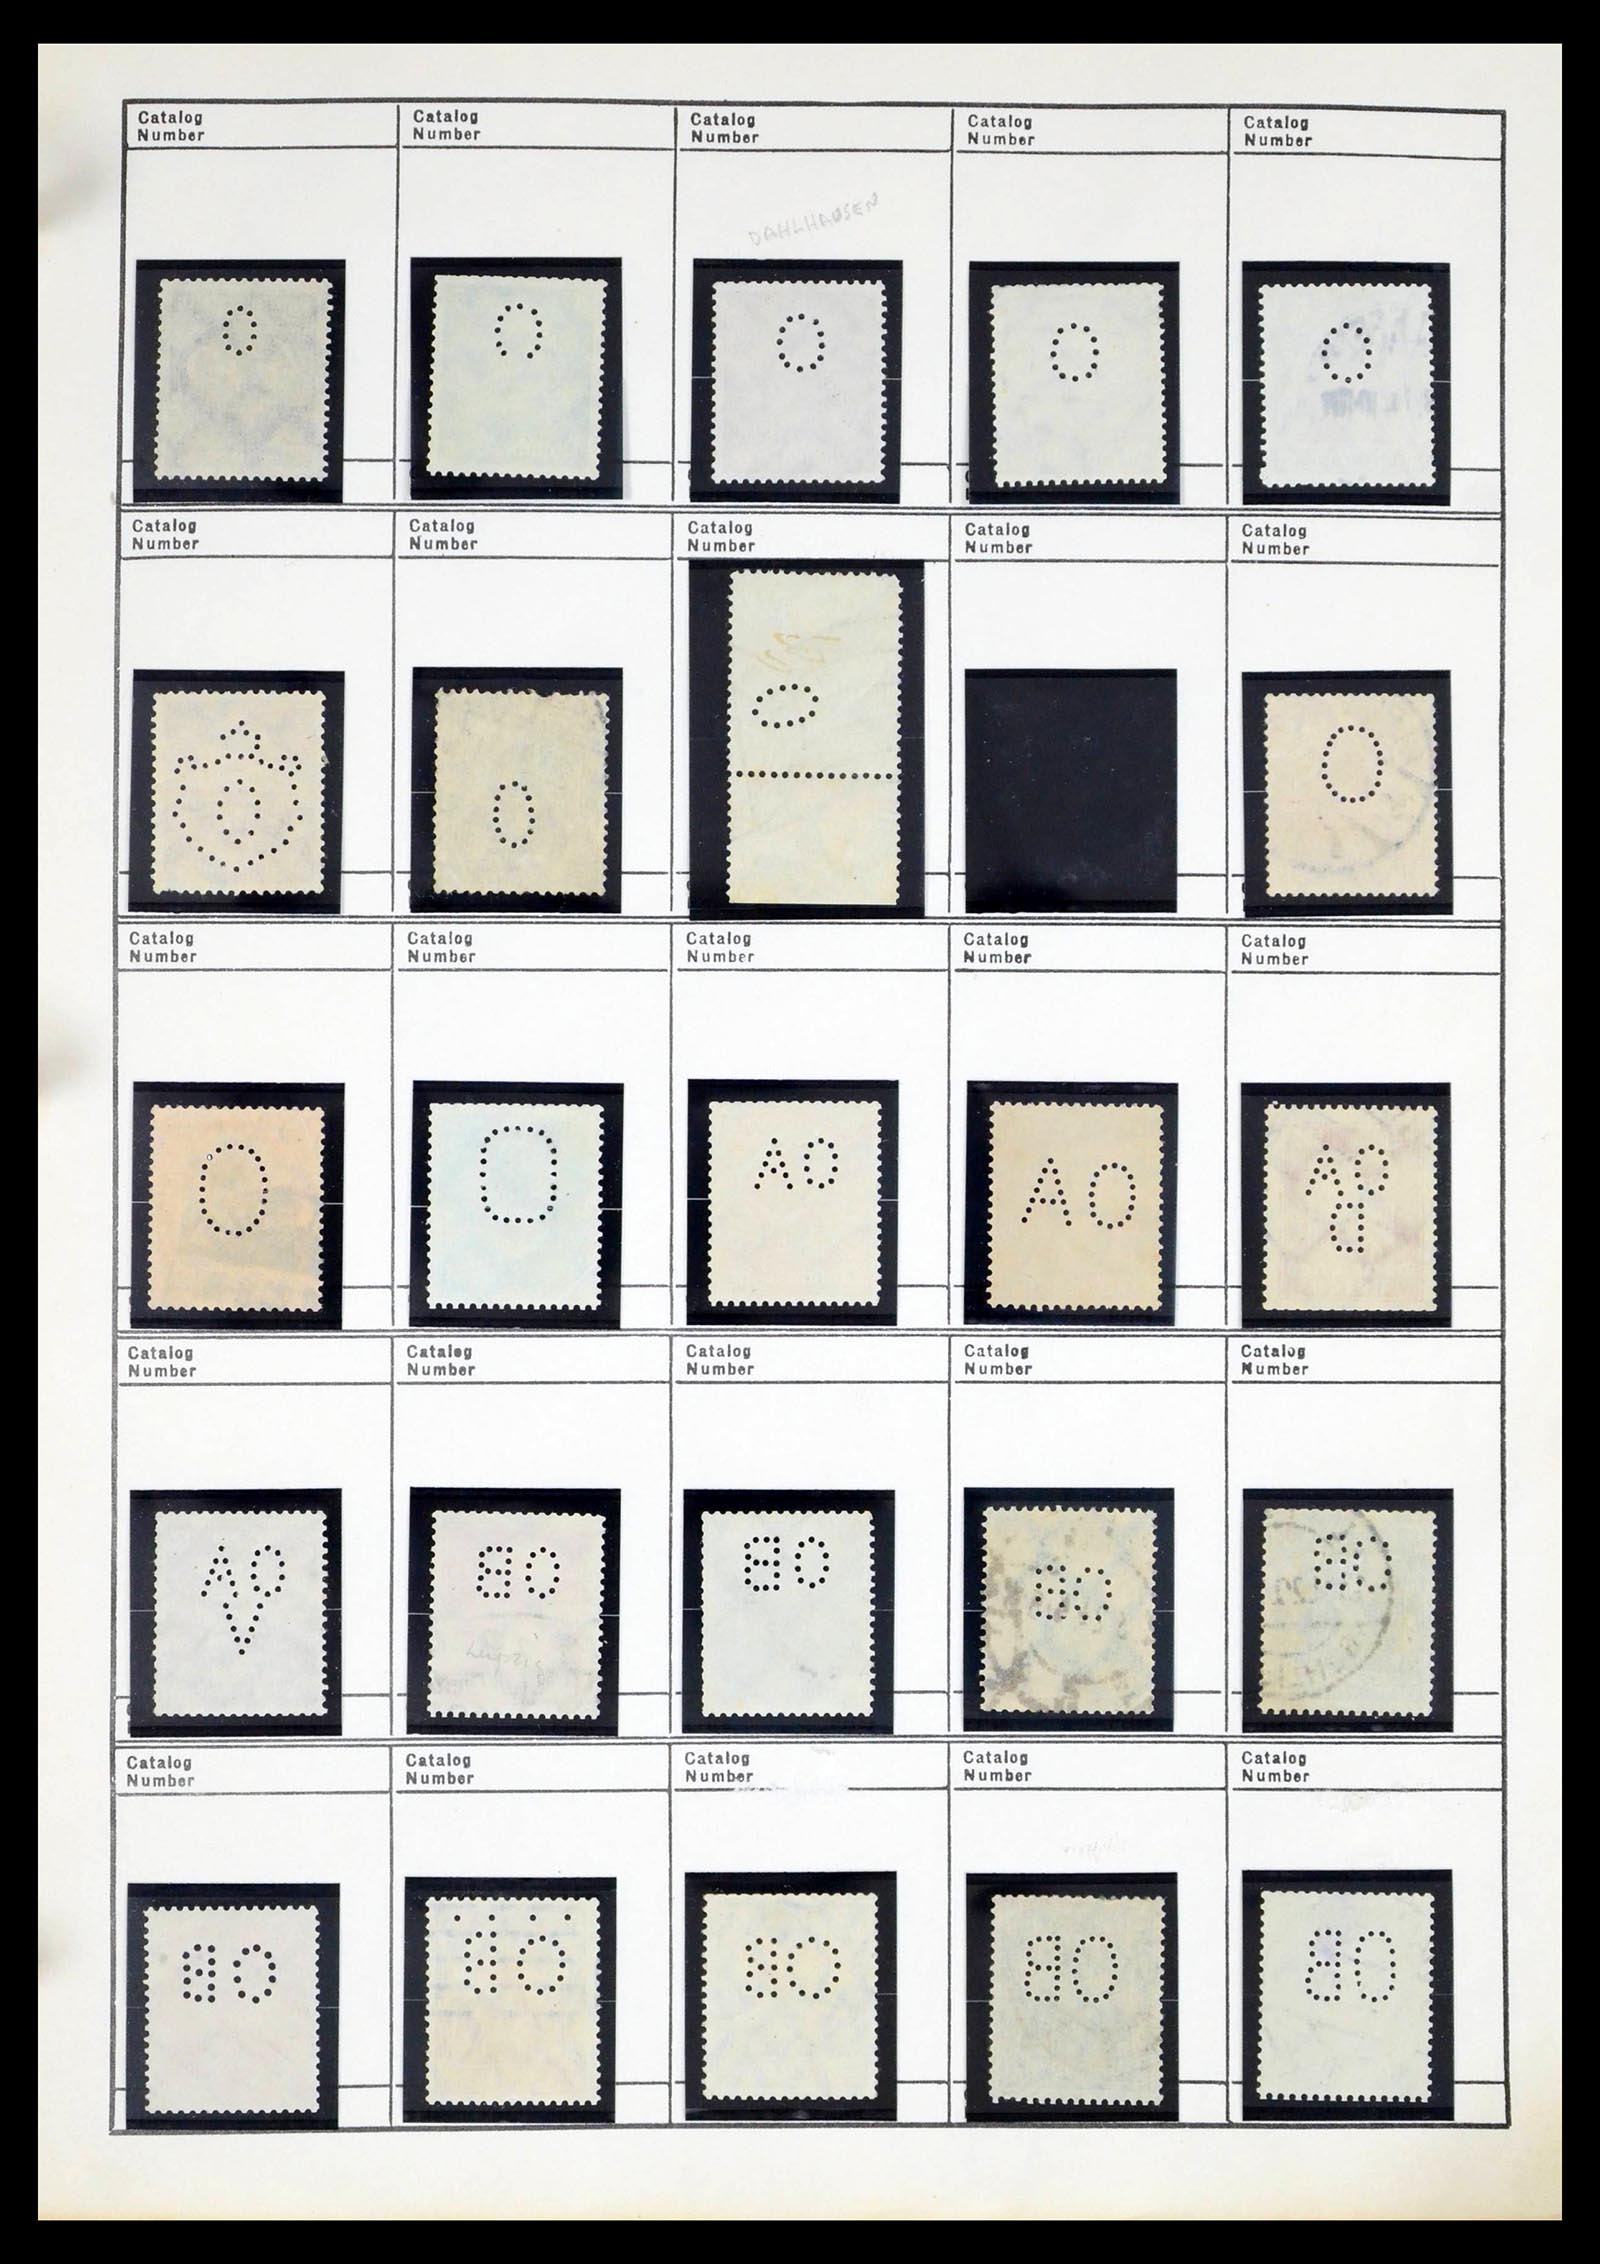 Catalog Number
Catalog Number
Catalog Number
Catalog Number
Catalog Number
DAHLHAUSEN
O
O
O
O
O
Catalog Number
Catalog Number
Catalog Number
Catalog Number
Catalog Number
O
O
O
O
Catalog Number
Catalog Number
Catalog Number
Catalog Number
Catalog Number
O
O
AO
AO
AO
D
Catalog Number
Catalog Number
Catalog Number
Catalog Number
Catalog Number
AO
V
BO
BO
BO
BO
Catalog Number
Catalog Number
Catalog Number
Catalog Number
Catalog Number
BO
BO
BO
BO
BO